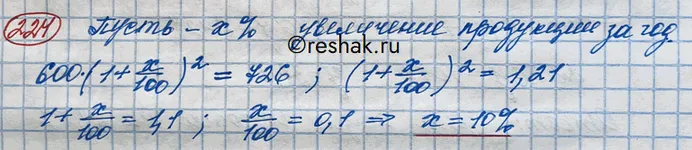 224 Пусть - x% увеличение продукции за год
©reshak.ru
600·(1+x/100)² = 726 ; (1+x/100)² = 1,21
1+x/100 = 1,1 ; x/100 = 0,1 ⇒ x = 10%